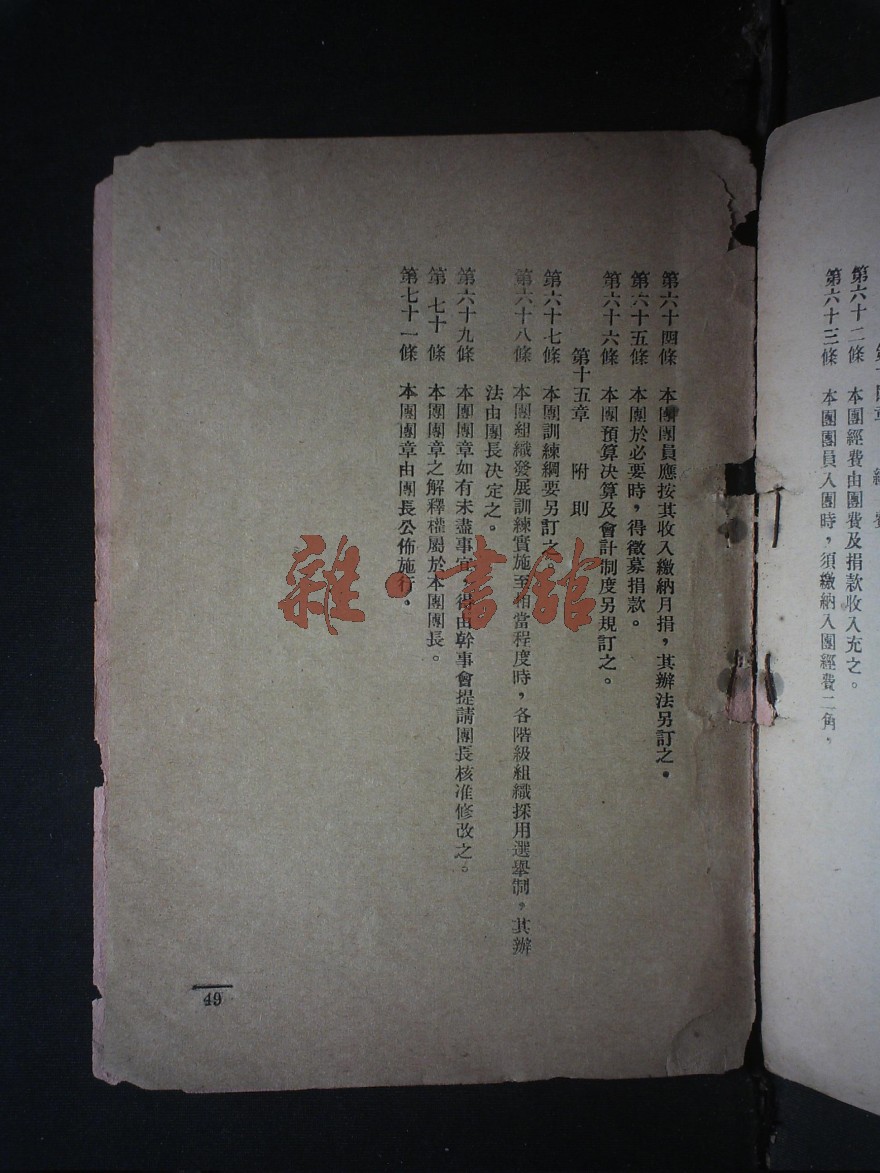 第六十二條　本團經費由團費及捐款收入充之。
第六十三條　本團團員入團時，須繳納入團經費二角，
第六十四條　本團團員應按其收入繳納月捐，其辦法另訂之。
第六十五條　本團於必要時，得徵募捐款。
第六十六條　本團預算決算及會計制度另規訂之。
第十五章　附則
第六十七條　本團訓練綱要另訂之。
第六十八條　本團組織發展訓練實施至相當程度時，各階級組織採用選舉制，其辦
法由團長決定之。
第六十九條　本團團章如有未盡事宜，得由幹事會提請團長核准修改之。
第七十條　本團團章之解釋權屬於本團團長。
第七十一條　本團團章由團長公佈施行。
49
雜·書館